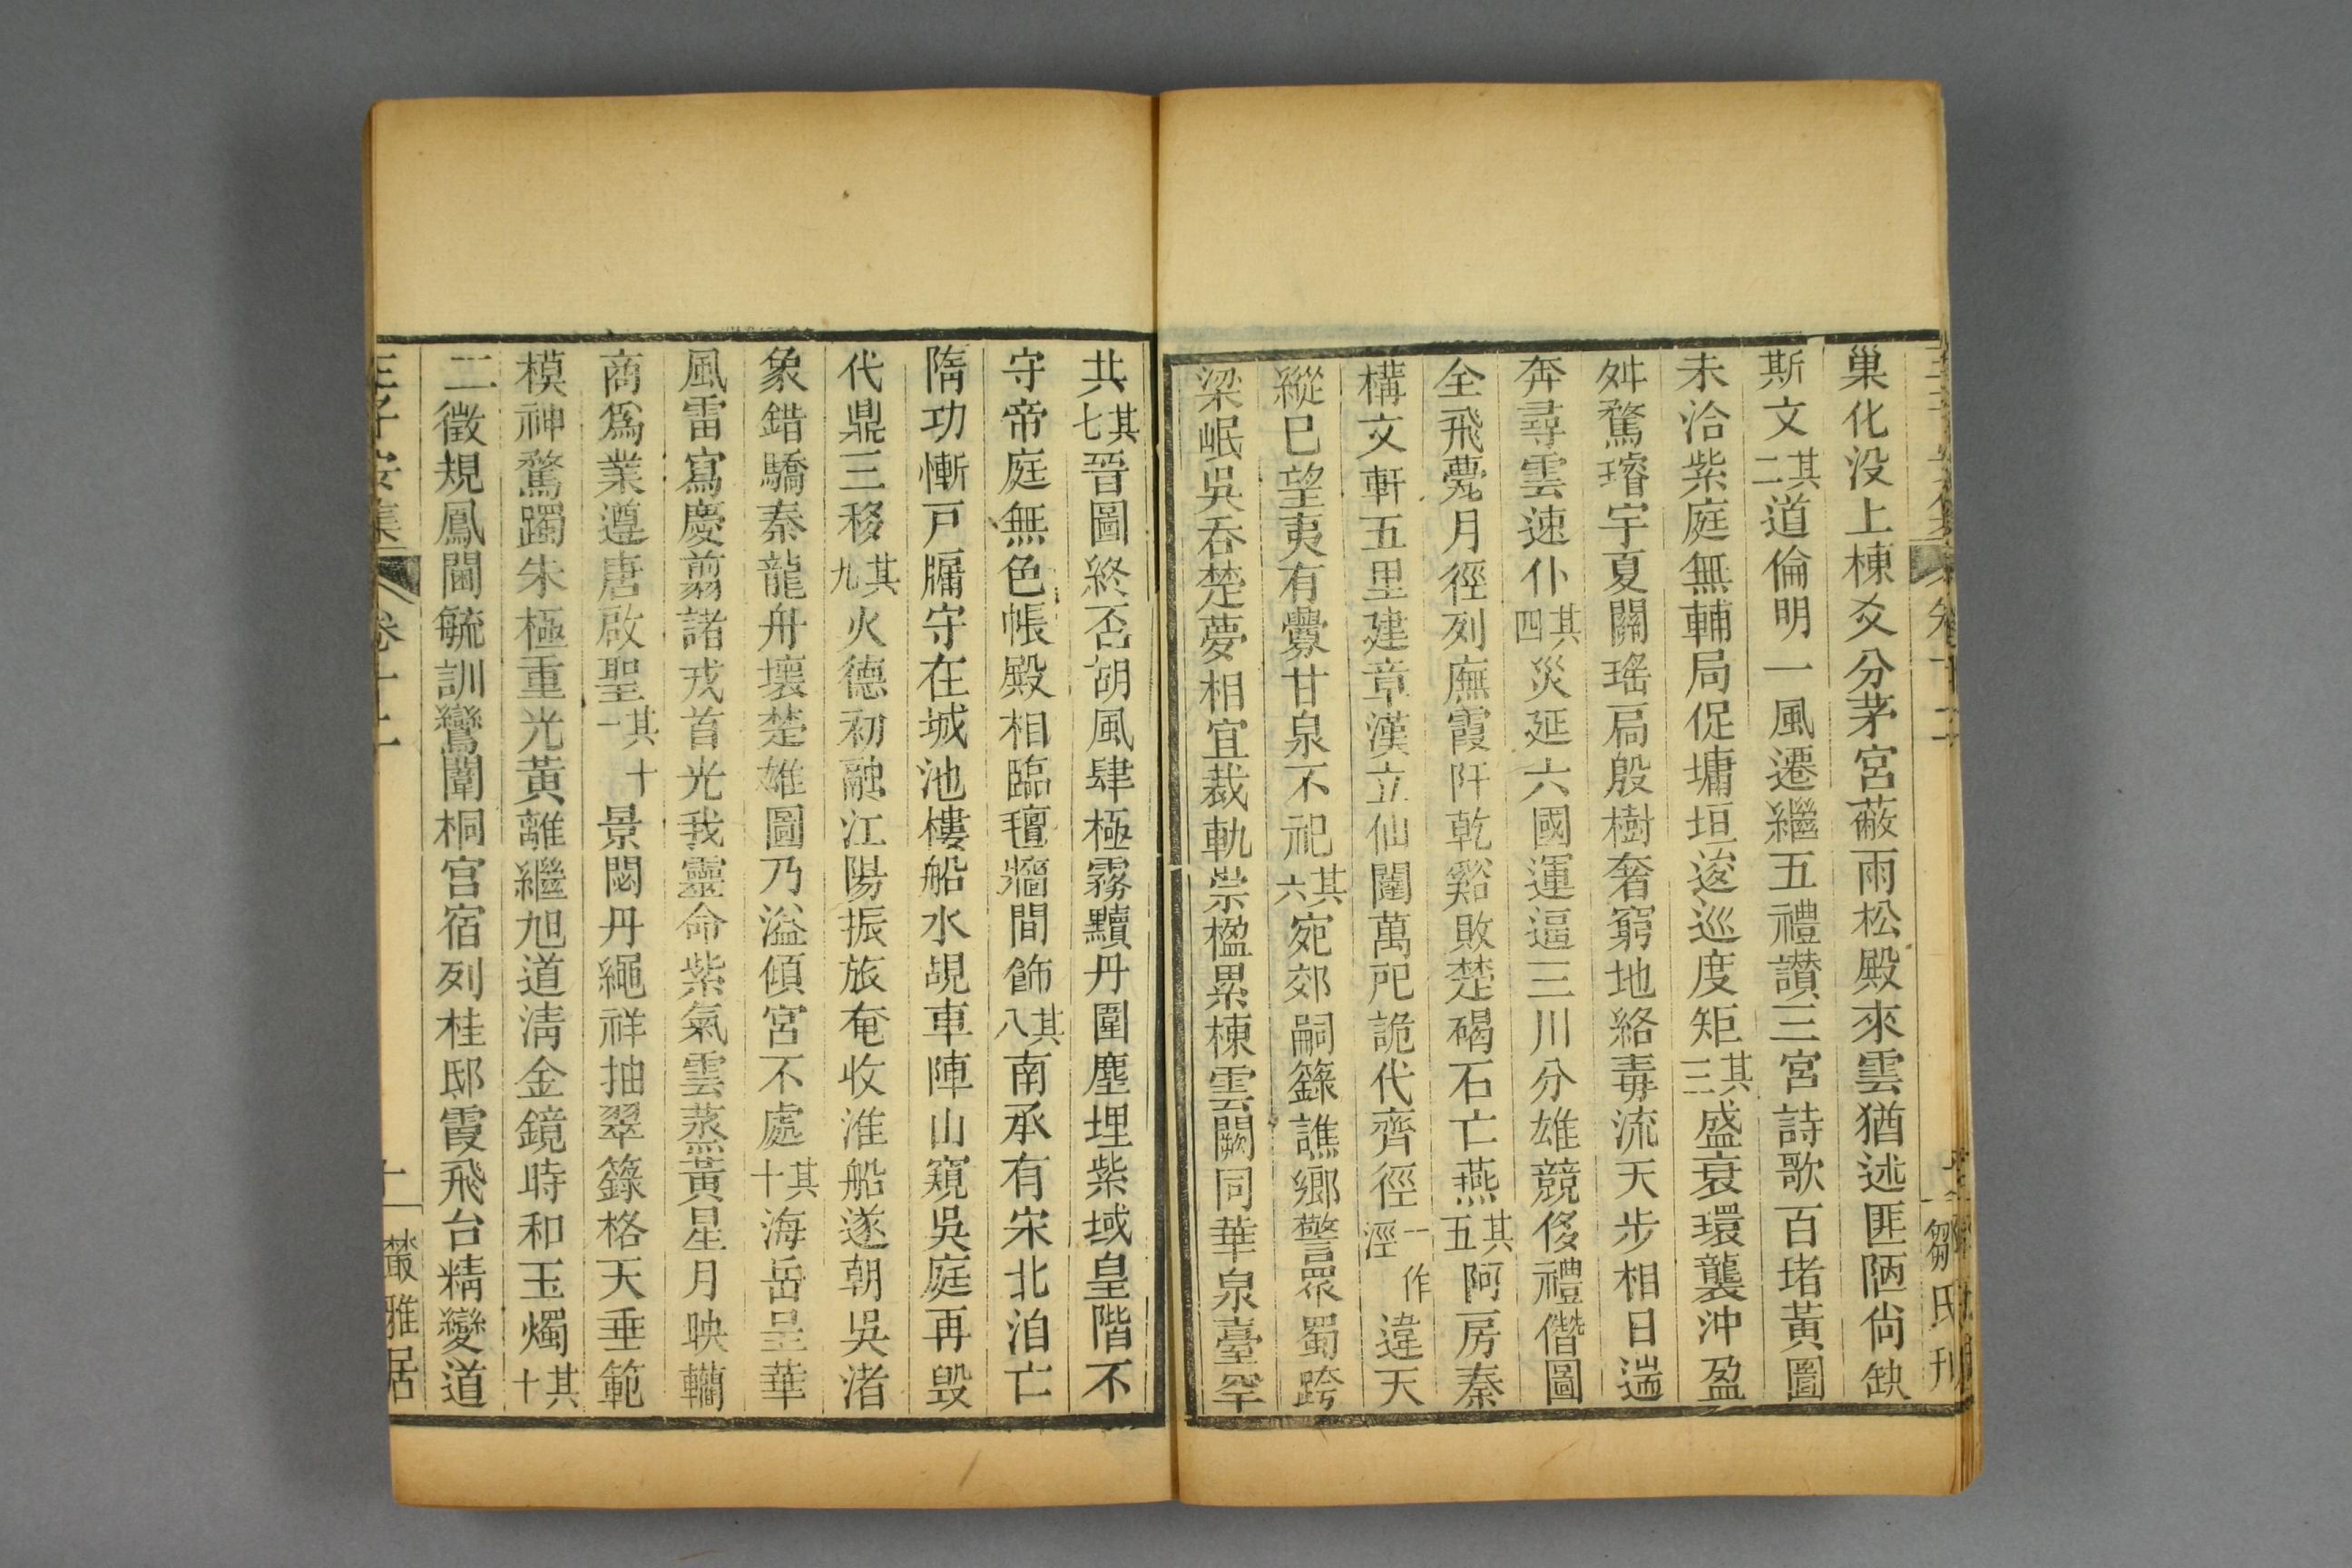 巢化没上棟爻分茅宮蔽雨松殿來雲猶述匪陋尙缺
斯文其二道倫明一風遷繼五禮讃三宮詩歌百堵黃圖
未洽紫庭無輔局促墉垣逡巡度矩其三盛衰環襲沖盈
舛騖璿宇夏闢瑤扃殷樹奢窮地絡毒流天步相日遄
奔尋雲速仆其四災延六國運逼三川分雄競侈禮僭圖
全飛甍月徑列廡霞阡乾谿敗楚碣石亡燕其五阿房秦
構文軒五里建章漢立仙闈萬戺詭代齊徑一作涇違天
縱巳望夷有釁甘泉不祀其六宛郊嗣籙譙鄉警眾蜀跨
梁岷吳呑楚夢相宜裁軌崇楹累棟雲闕同華泉臺罕
共其七晉圖終否胡風肆極霧黷丹圍塵埋紫域皇階不
守帝庭無色帳殿相臨氊牆間飾其八南承有宋北泊亡
隋功慚戸牖守在城池樓船水覘車陣山窺吳庭再毀
代鼎三移其九火德初融江陽振旅奄收淮船遂朝吳渚
象錯驕秦龍舟壞楚雄圖乃溢傾宮不處其十海岳呈華
風雷寫慶翦諸戎首光我靈命紫氣雲蒸黃星月映轥
商爲業遵唐啟聖其十一景閟丹繩祥抽翠籙格天垂範
模神騖躅朱極重光黃離繼旭道清金鏡時和玉燭其十
二徵規鳳閫毓訓鸞闈桐宮宿列桂邸霞飛台精變道
王子安集 卷十二
叢雅居
鄒氏刊